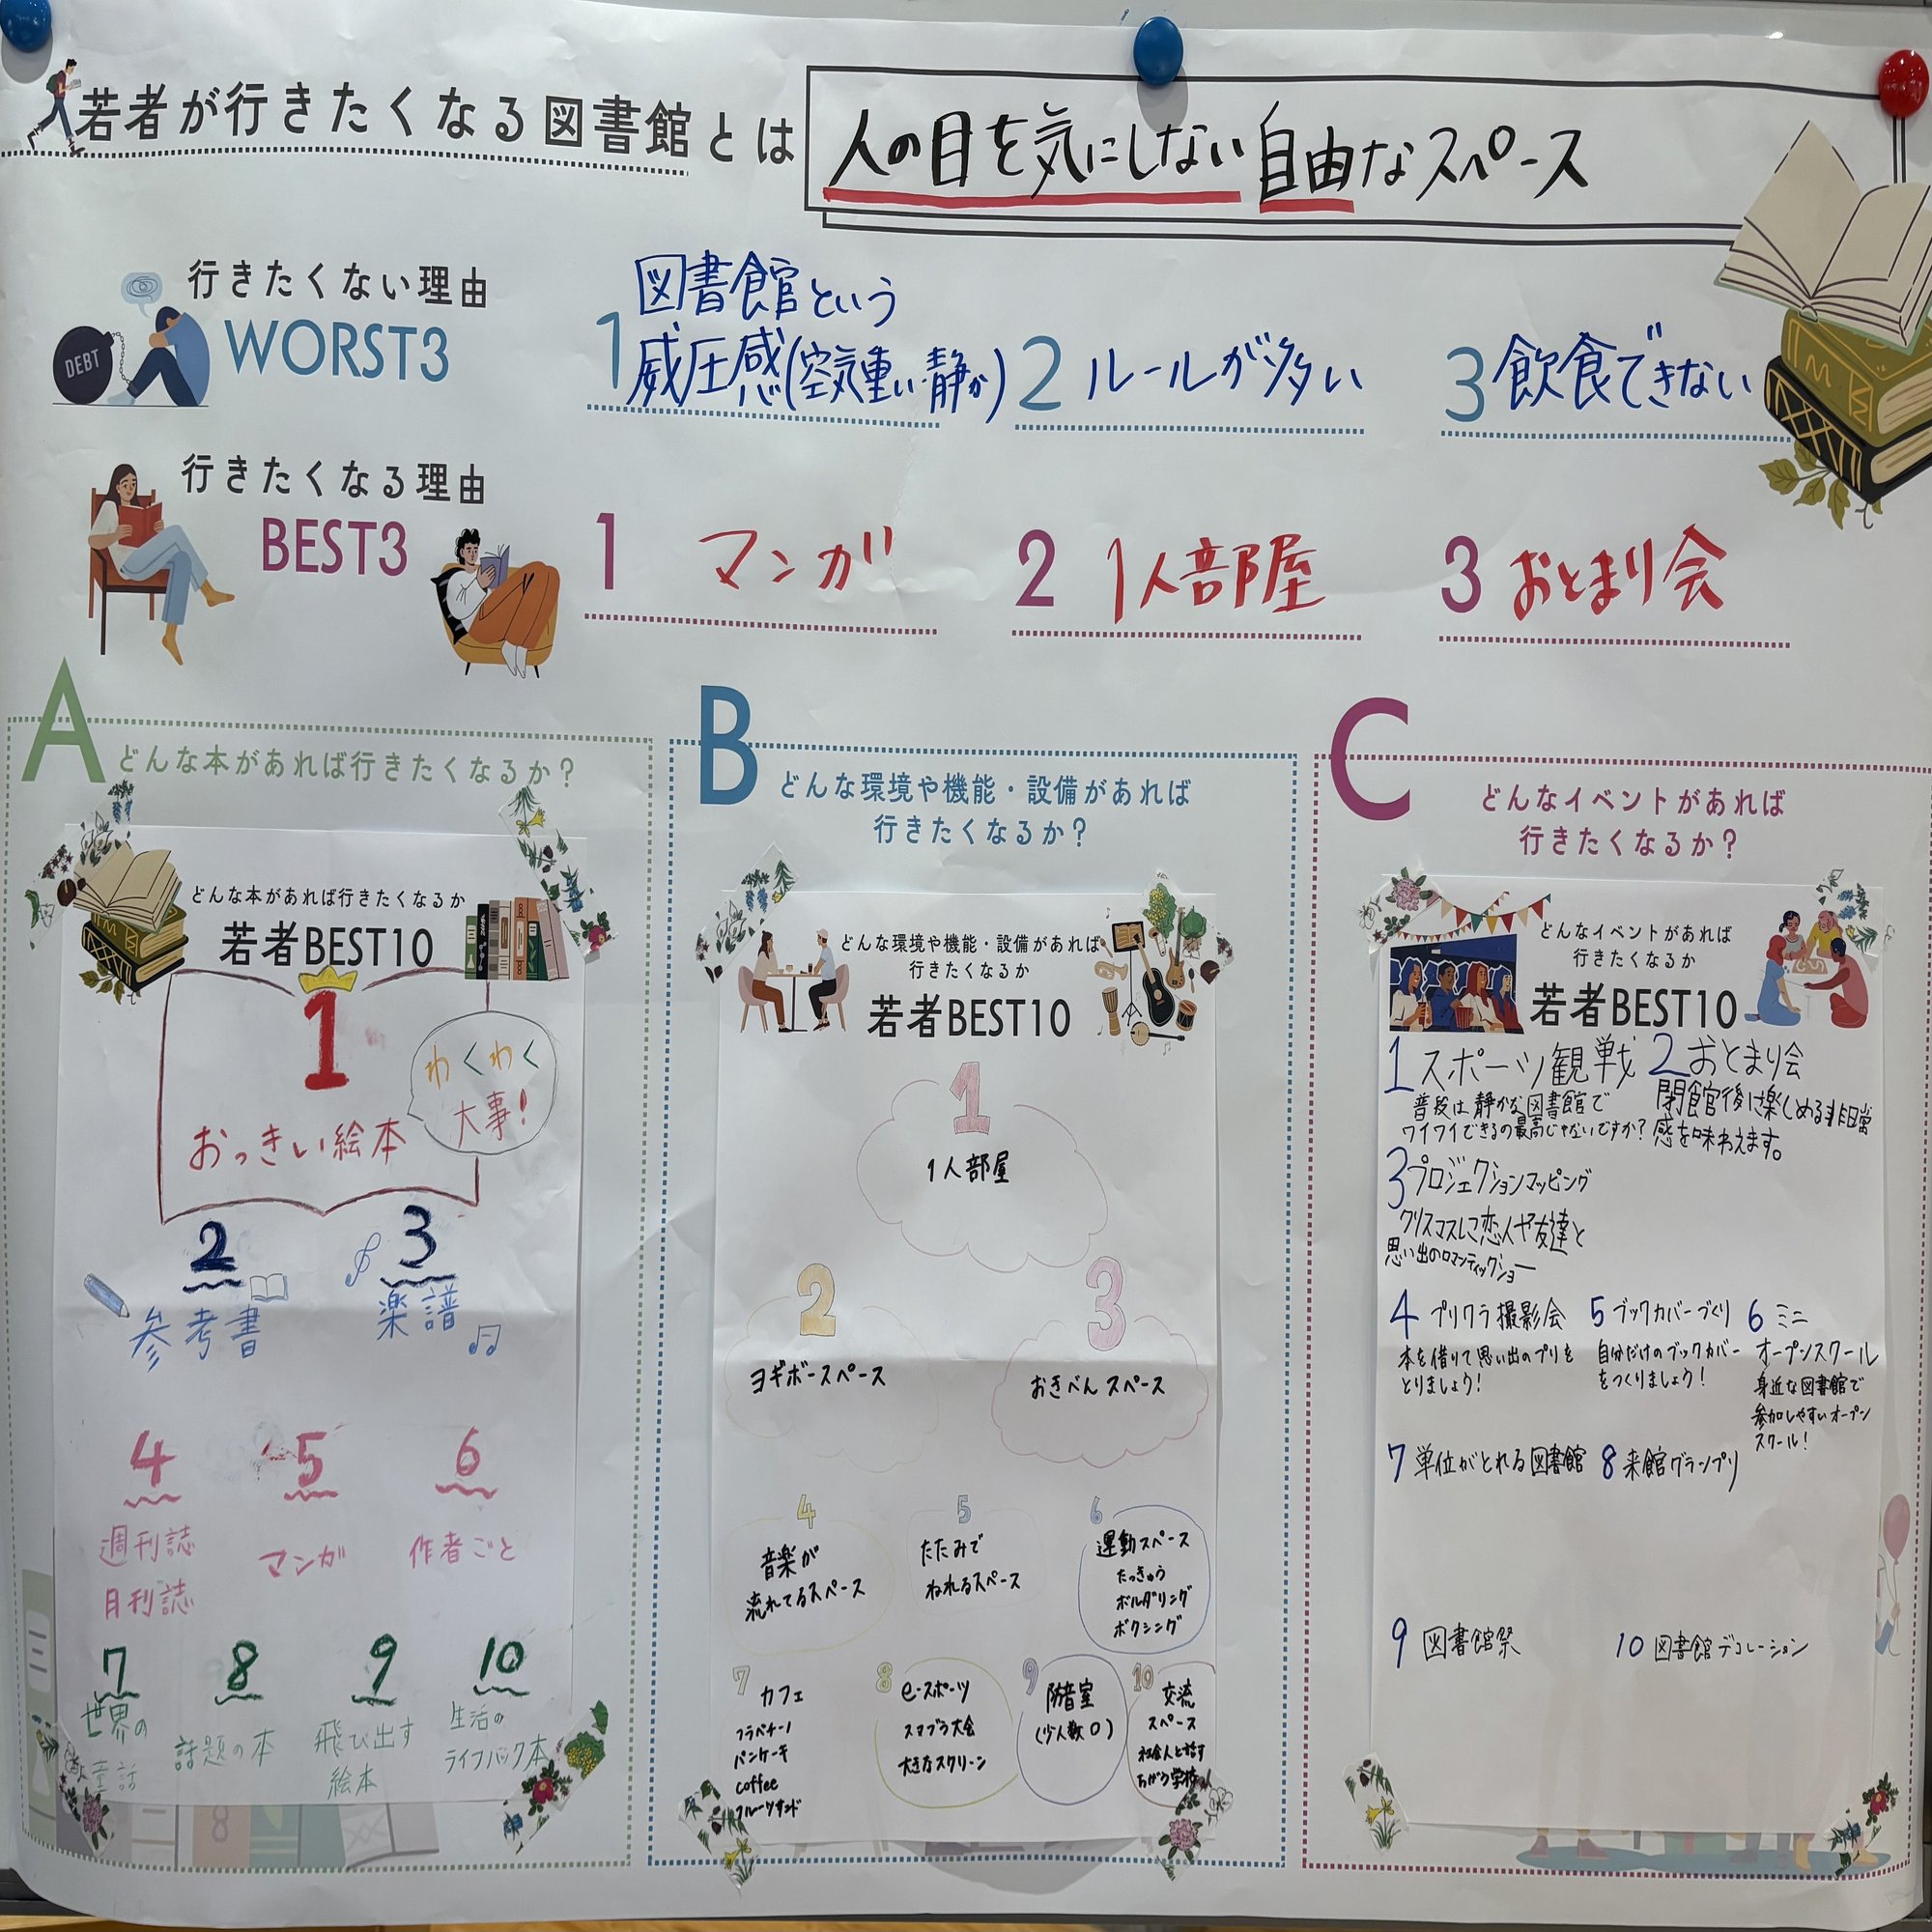 若者が行きたくなる図書館とは
人の目を気にしない自由なスペース
行きたくない理由
WORST3
DEBT
1 図書館という
威圧感(空気重い・静か)
2 ルールが多い
3 飲食できない
行きたくなる理由
BEST3
1 マンガ
2 1人部屋
3 おとまり会
A
どんな本があれば行きたくなるか?
どんな本があれば行きたくなるか
若者BEST10
1
おっきい絵本
わくわく
大事!
2
参考書
3
楽譜
4
週刊誌
月刊誌
5
マンガ
6
作者ごと
7
世界の
童話
8
話題の本
9
飛び出す
絵本
10
生活の
ライフハック本
B
どんな環境や機能・設備があれば
行きたくなるか?
どんな環境や機能・設備があれば
行きたくなるか
若者BEST10
1
1人部屋
2
ヨギボースペース
3
おきべんスペース
4
音楽が
流れてるスペース
5
たたみで
ねれるスペース
6
運動スペース
たっきゅう
ボルダリング
ボクシング
7
カフェ
フラペチーノ
パンケーキ
coffee
フルーツサンド
8
e-スポーツ
スマブラ大会
大きなスクリーン
9
防音室
(少人数〇)
10
交流
スペース
社会人と話す
ちがう学校
C
どんなイベントがあれば
行きたくなるか?
どんなイベントがあれば
行きたくなるか
若者BEST10
1 スポーツ観戦
普段は静かな図書館で
ワイワイできるの最高じゃないですか?
2 おとまり会
閉館後に楽しめる非日常
感を味わえます。
3 プロジェクションマッピング
クリスマスに恋人や友達と
思い出のロマンティックショー
4 プリクラ撮影会
本を借りて思い出のプリを
とりましょう!
5 ブックカバーづくり
自分だけのブックカバー
をつくりましょう!
6 ミニ
オープンスクール
身近な図書館で
参加しやすいオープン
スクール!
7 単位がとれる図書館
8 来館グランプリ
9 図書館祭
10 図書館デコレーション